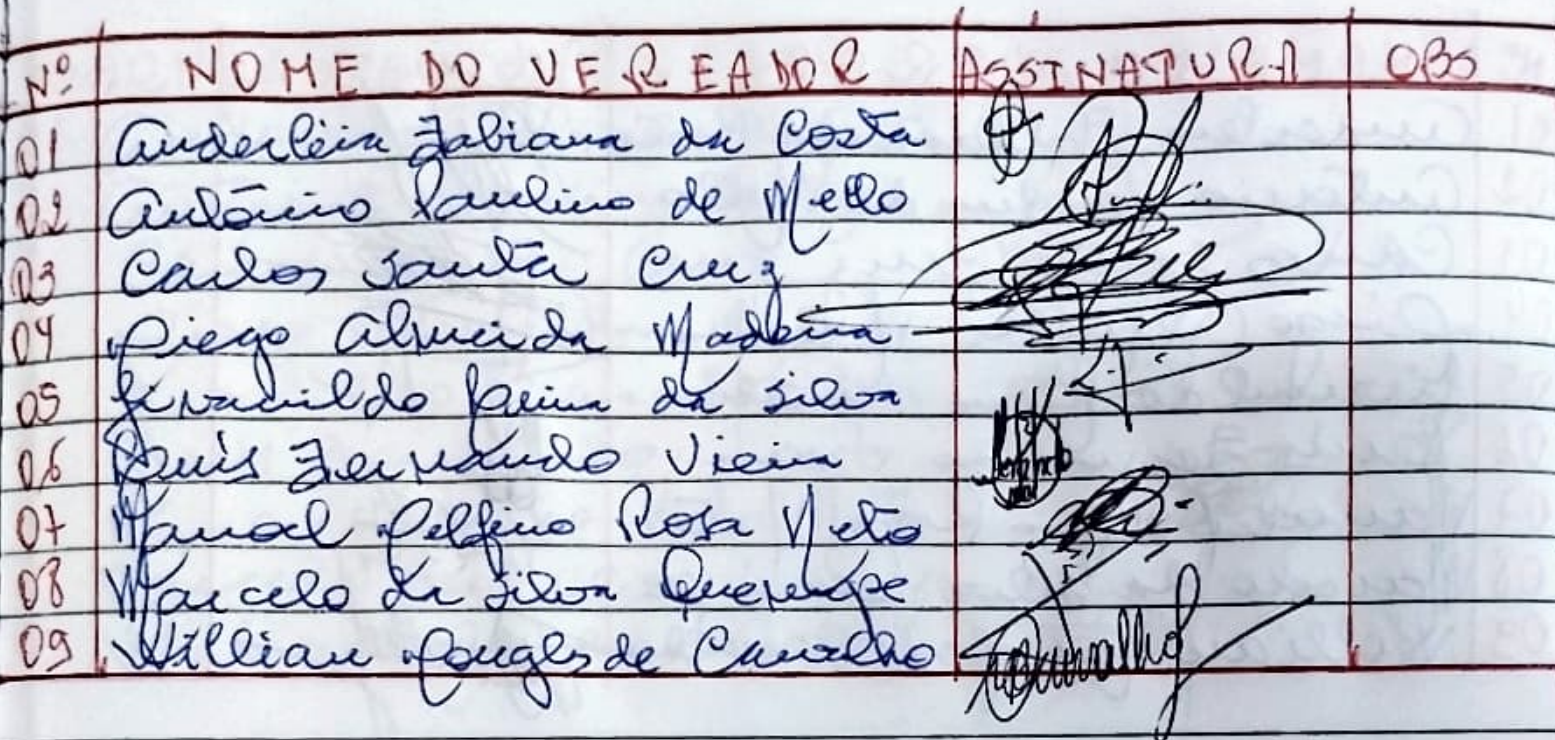 Nº NOME DO VEREADOR ASSINATURA OBS
01 Anderléia Fabiana da Costa
02 Antônio Paulino de Mello
03 Carlos Santa Cruz
04 Diego Almeida Madeira
05 da Silva
06 Luís Fernando Vieira
07 Manoel Delfino Rosa Neto
08 Marcelo da Silva
09 Willian Douglas de Carvalho Carvalho